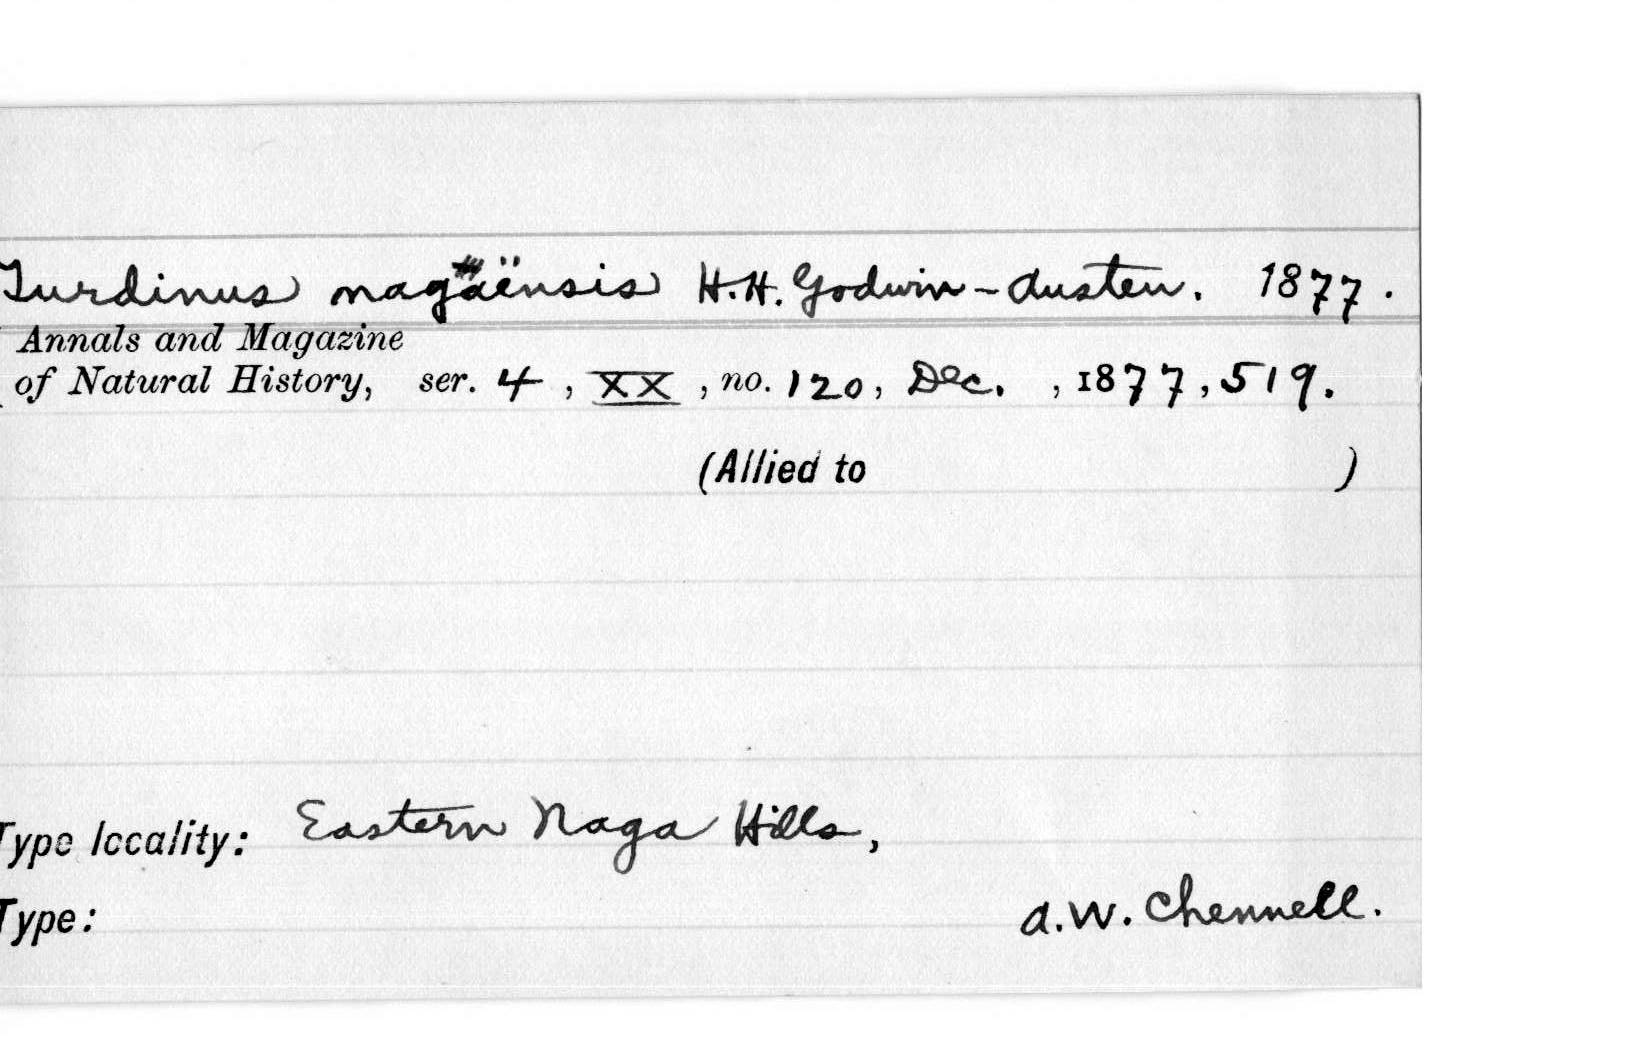 Turdinus nagaënsis H.H. Godwin-Austen. 1877.
Annals and Magazine
of Natural History, ser. 4, XX, no. 120, Dec. , 1877, 519.
(Allied to )
Type locality: Eastern Naga Hills,
Type: A.W. Chennell.